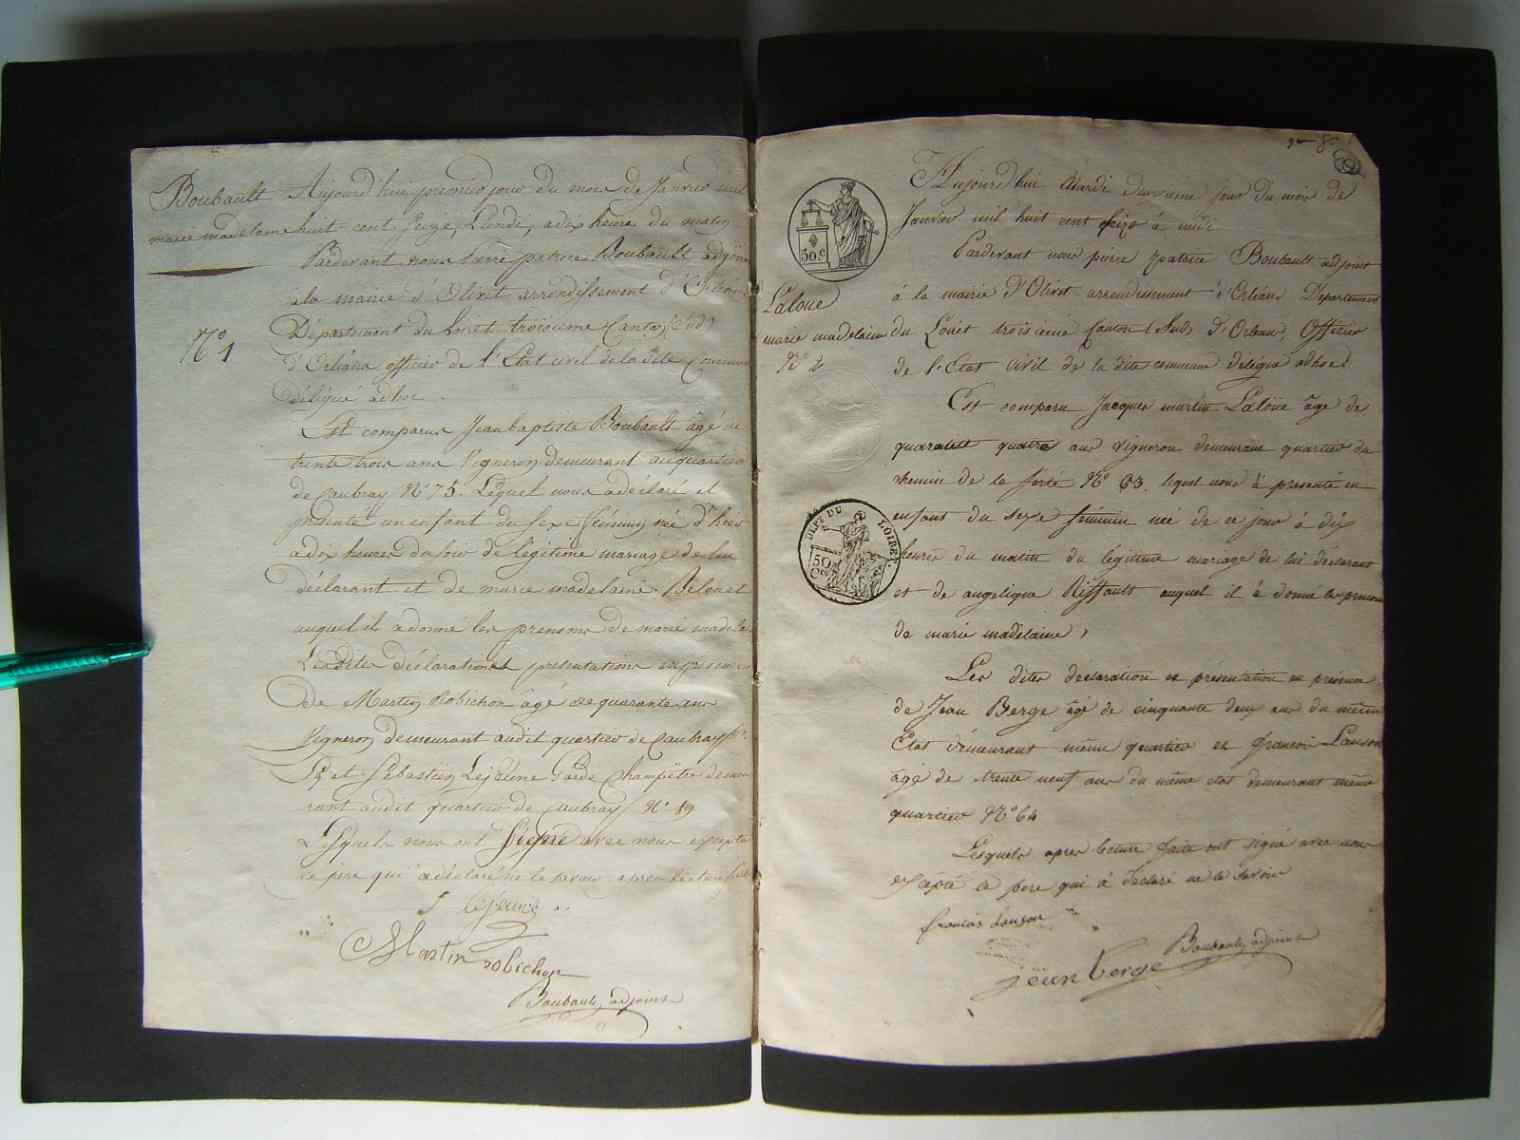 Boubault
marie madelaine
N° 1
Aujourd'hui premier jour du mois de Janvier mil
huit cent Seize, Lundi, a dix heure du matin
Pardevant nous pierre patrice Boubault adjoin
à la mairie d'Olivet arrondissement d'Orleans
Département du Loiret troisieme Canton (Sud)
d'Orléans officier de l'Etat civil de la dite Commune
délégué adhoc.
Est comparus Jean baptiste Boubault âgé de
trente trois ans Vigneron demeurant au quartier
de Caubray N° 75. Lequel nous a déclaré et
présenté un enfant du sexe féminin née d'hier
a dix heures du soir de légitime mariage de lui
déclarant et de marie madelaine
auquel il a donné les prenoms de marie madele
Lesdites déclaration et présentation en présence
De Martin Robichon âgé de quarante ans
Vigneron demeurant audit quartier de Caubray
Et Sébastien Lejeune Garde Champêtre demeu
rant audit quartier de Caubray N° 19
Lesquels nous ont Signé avec nous excepté
le pere qui a déclaré ne le savoir apres lecture fait
S lejeune
Martin robichon
Boubault, adjoint
50.C
DEPT DU LOIRET
50 C
Laloue
marie madelaine
N° 2
Aujourd'hui Mardi deuxieme jour du mois de
Janvier mil huit cent seize à midi
Pardevant nous pierre patrice Boubault adjoint
à la mairie d'Olivet arrondissement d'Orléans Departement
du Loiret troisieme Canton (Sud) d'Orleans, Officier
de l'Etat Civil de la dite commune délégué adhoc.
Est comparu Jacques martin Laloüe âge de
quarante quatre ans vigneron demeurant quartier du
chemin de la ferté N° 63. lequel nous à presenté un
enfant du sexe féminin née de ce jour à dix
heures du matin du légitime mariage de lui déclarant
et de angelique Riffault auquel il à donné les prenoms
de marie madelaine,
Les dites déclaration et présentation en presence
de Jean Berge âgé de cinquante deux ans du même
Etat demeurant même quartier et francois Lauson
âgé de trente neuf ans du même etat demeurant même
quartier N° 64
Lesquels apres lecture faite ont signé avec nous
excepté le pere qui à déclaré ne le Savoir
francois Lauson
Boubault, adjoint
jean berge